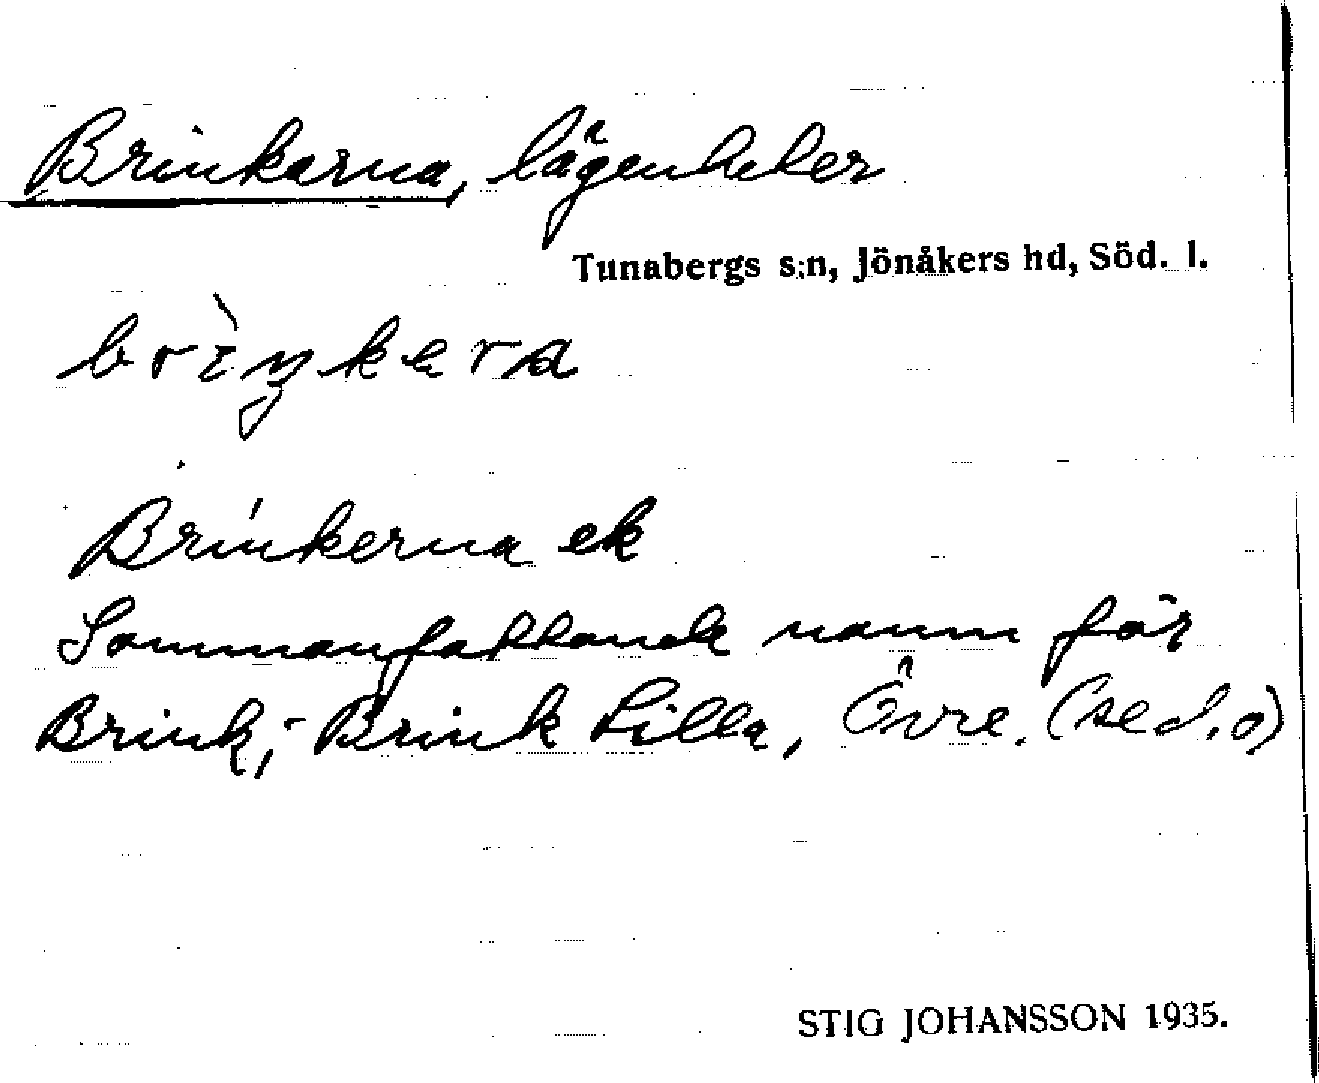 Brinkarna, lägenheter
Tunabergs s:n, Jönåkers hd, Söd. l.
brìŋkera
Brinkerna ek
Sammanfattande namn för
Brink, Brink Lilla, Övre. (se d. o)
STIG JOHANSSON 1935.